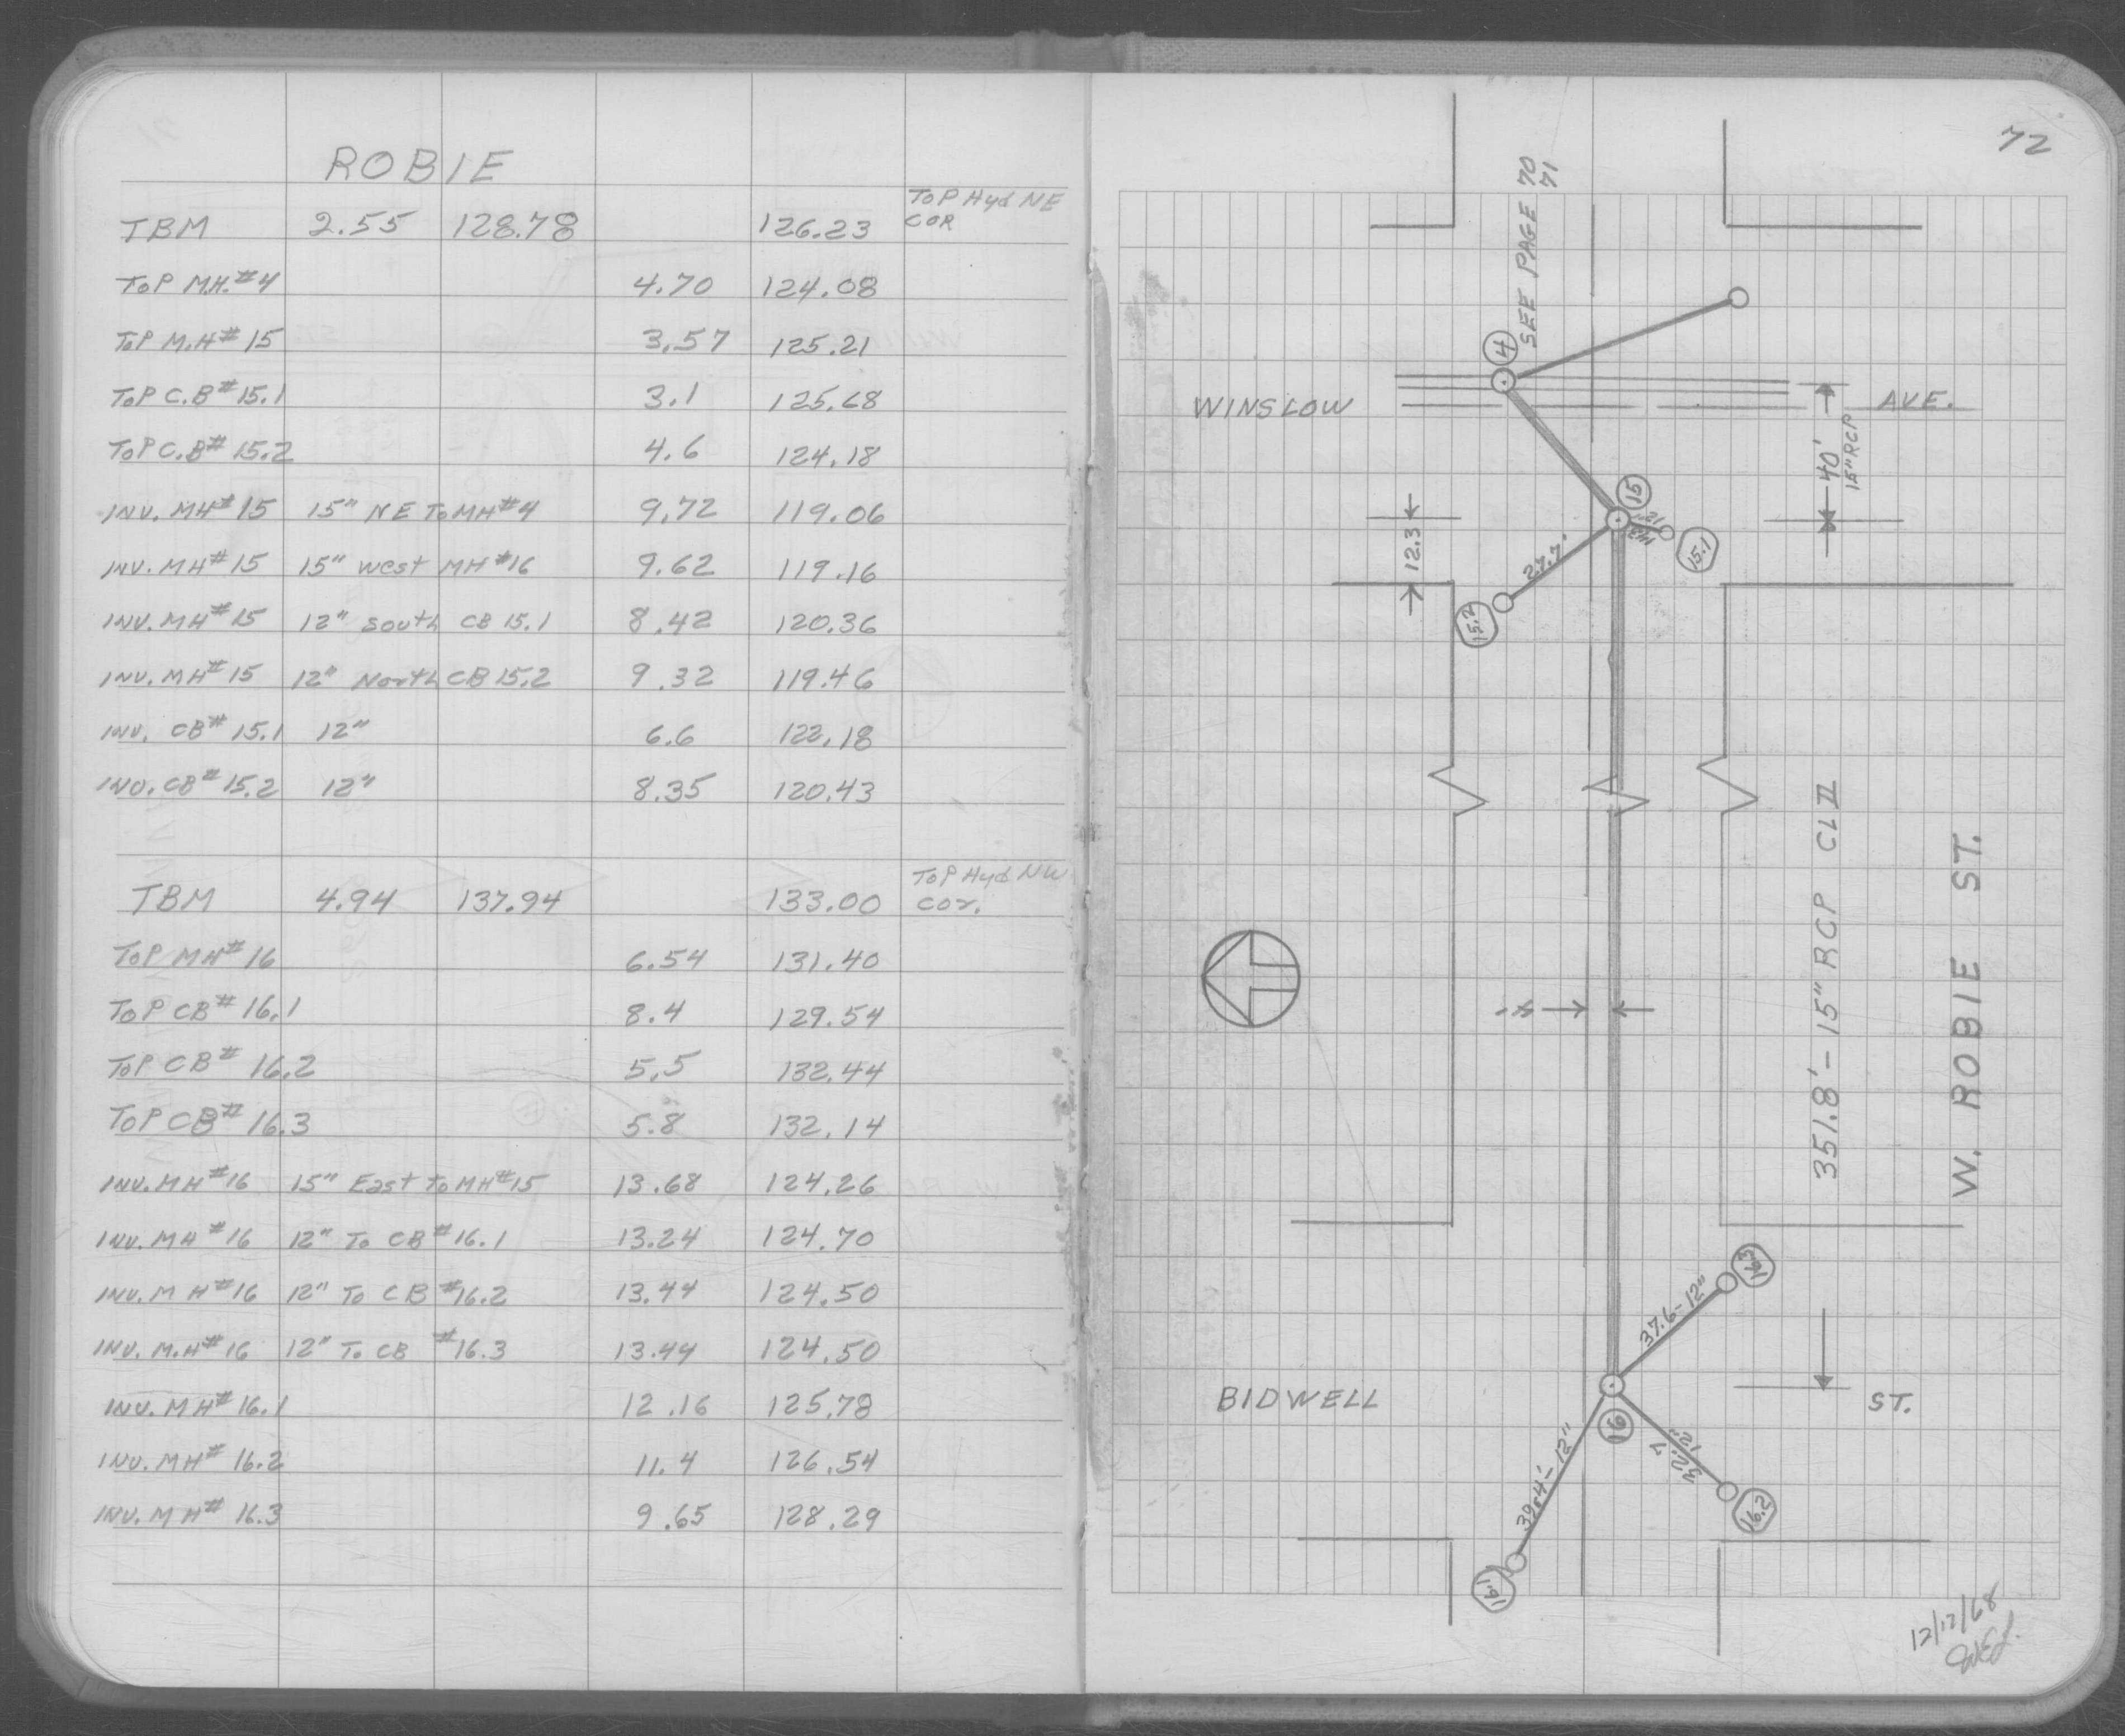 ROBIE
TBM 2.55 128.78 126.23 TOP Hyd NE COR
TOP M.H. #4 4.70 124.08
TOP M.H # 15 3.57 125.21
TOP C.B # 15.1 3.1 125.68
TOP C.B # 15.2 4.6 124.18
INV. MH # 15 15" NE To MH #4 9.72 119.06
INV. MH # 15 15" West MH #16 9.62 119.16
INV. MH # 15 12" South CB 15.1 8.42 120.36
INV. MH # 15 12" North CB 15.2 9.32 119.46
INV. CB # 15.1 12" 6.6 122.18
INV. CB # 15.2 12" 8.35 120.43
TBM 4.94 137.94 133.00 TOP Hyd NW COR.
TOP MH # 16 6.54 131.40
TOP CB # 16.1 8.4 129.54
TOP CB # 16.2 5.5 132.44
TOP CB # 16.3 5.8 132.14
INV. MH # 16 15" East To MH #15 13.68 124.26
INV. MH # 16 12" To CB # 16.1 13.24 124.70
INV. MH # 16 12" To CB #16.2 13.44 124.50
INV. M.H # 16 12" To CB #16.3 13.44 124.50
INV. MH # 16.1 12.16 125.78
INV. MH # 16.2 11.4 126.54
INV. MH # 16.3 9.65 128.29
72
SEE PAGE 70
71
4
WINSLOW AVE.
40'
15" RCP
15
12"
12.3
27.7'
15.1
15.2
351.8' - 15" RCP CL II
W. ROBIE ST.
37.6 - 12"
16.3
BIDWELL ST.
16
39.4' - 12"
12"
16.2
16.1
12/12/68